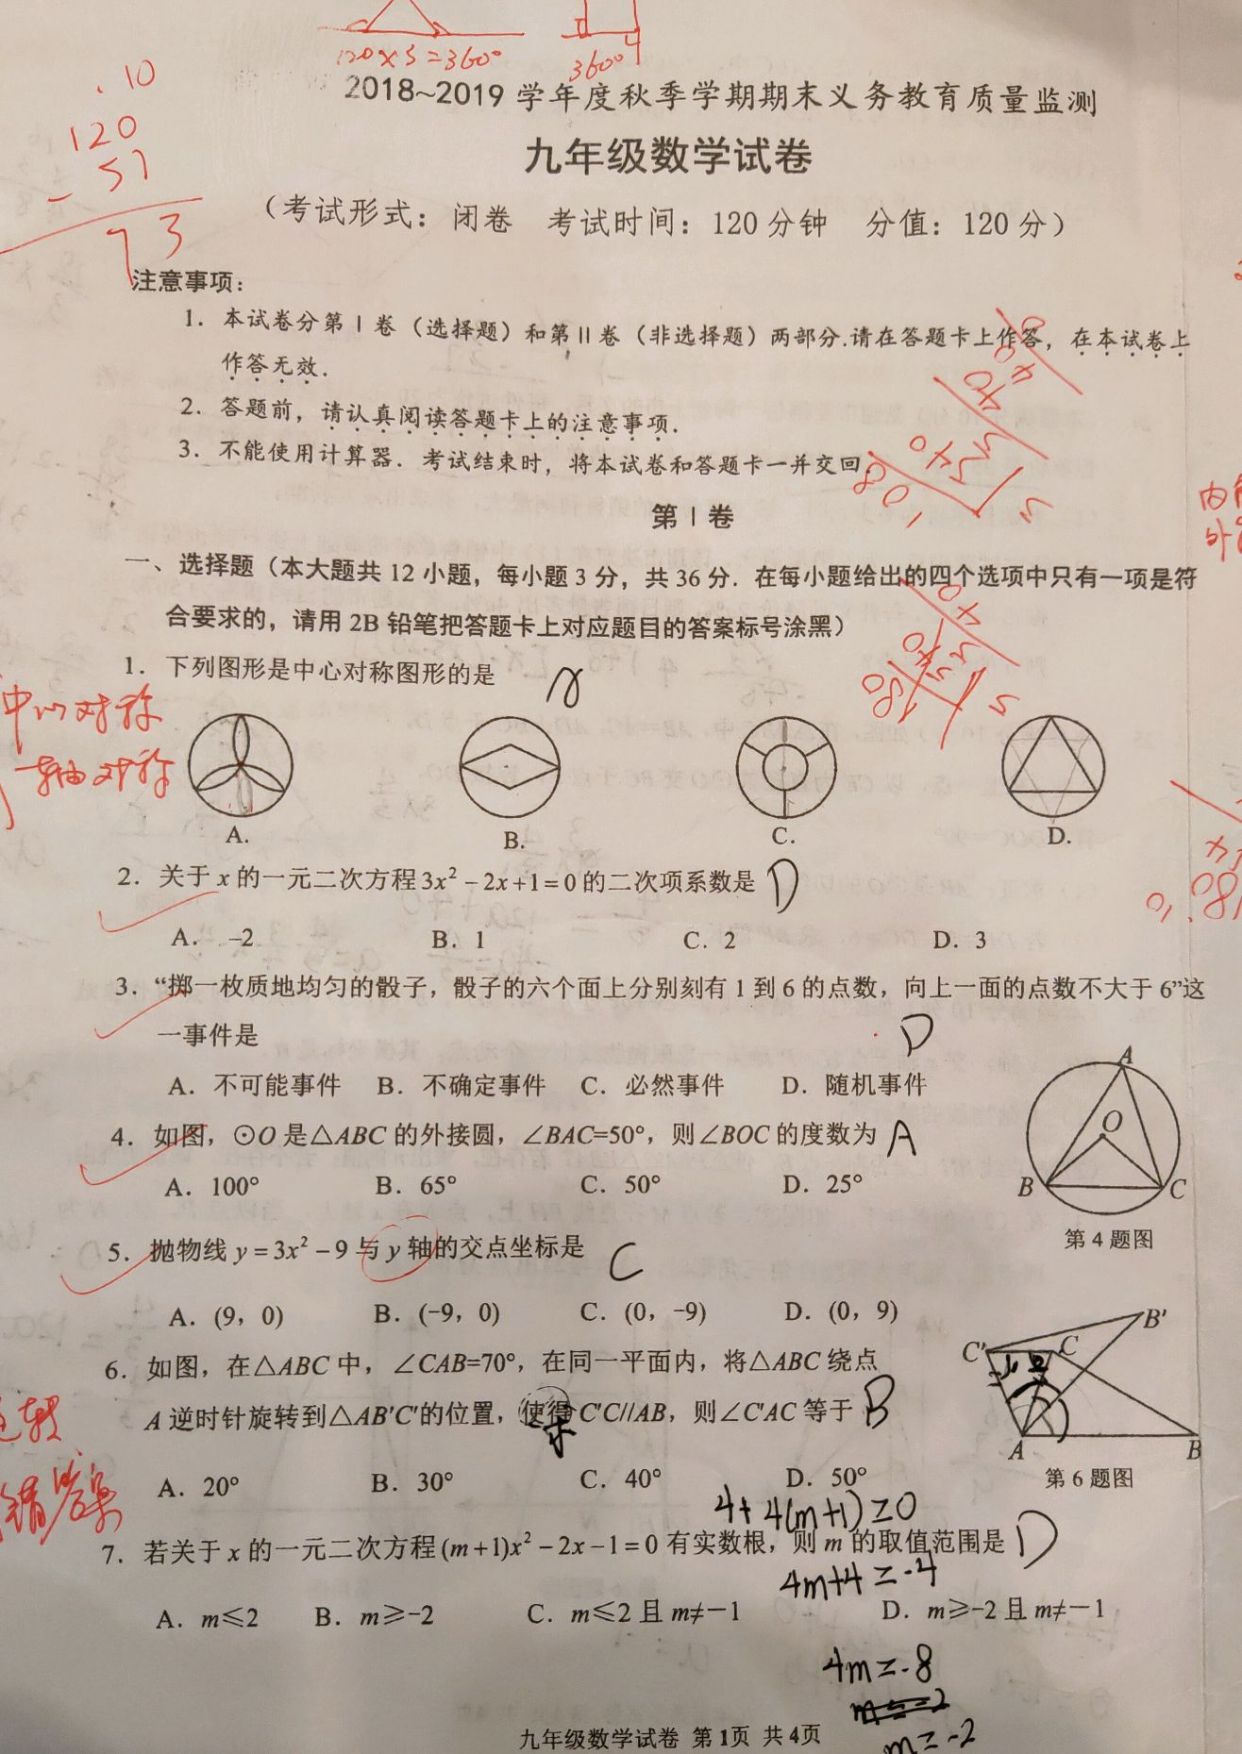 120×3=360°
360°
10
120
- 57
73
2018~2019 学年度秋季学期期末义务教育质量监测
九年级数学试卷
（考试形式：闭卷 考试时间：120 分钟 分值：120 分）
注意事项：
1．本试卷分第Ⅰ卷（选择题）和第Ⅱ卷（非选择题）两部分.请在答题卡上作答，在本试卷上
作答无效．
2．答题前，请认真阅读答题卡上的注意事项．
3．不能使用计算器．考试结束时，将本试卷和答题卡一并交回
第Ⅰ卷
一、选择题（本大题共 12 小题，每小题 3 分，共 36 分．在每小题给出的四个选项中只有一项是符
合要求的，请用 2B 铅笔把答题卡上对应题目的答案标号涂黑）
1．下列图形是中心对称图形的是
中心对称
轴对称
A. B. C. D.
2．关于 x 的一元二次方程 3x² − 2x + 1 = 0 的二次项系数是 D
A．-2 B．1 C．2 D．3
3．“掷一枚质地均匀的骰子，骰子的六个面上分别刻有 1 到 6 的点数，向上一面的点数不大于 6”这
一事件是 D
A．不可能事件 B．不确定事件 C．必然事件 D．随机事件
4．如图，⊙O 是△ABC 的外接圆，∠BAC=50°，则∠BOC 的度数为 A
A．100° B．65° C．50° D．25°
A
O
B C
第 4 题图
5．抛物线 y = 3x² − 9 与 y 轴的交点坐标是 C
A．(9，0) B．(−9，0) C．(0，−9) D．(0，9)
6．如图，在△ABC 中，∠CAB=70°，在同一平面内，将△ABC 绕点
A 逆时针旋转到△AB′C′的位置，使得 C′C//AB，则∠C′AC 等于 B
A．20° B．30° C．40° D．50°
B′
C′ C
A B
第 6 题图
4+4(m+1)≥0
7．若关于 x 的一元二次方程 (m+1)x² − 2x − 1 = 0 有实数根，则 m 的取值范围是 D
4m+4≥-4
A．m≤2 B．m≥-2 C．m≤2 且 m≠−1 D．m≥-2 且 m≠−1
4m≥-8
m≥-2
九年级数学试卷 第 1页 共 4页